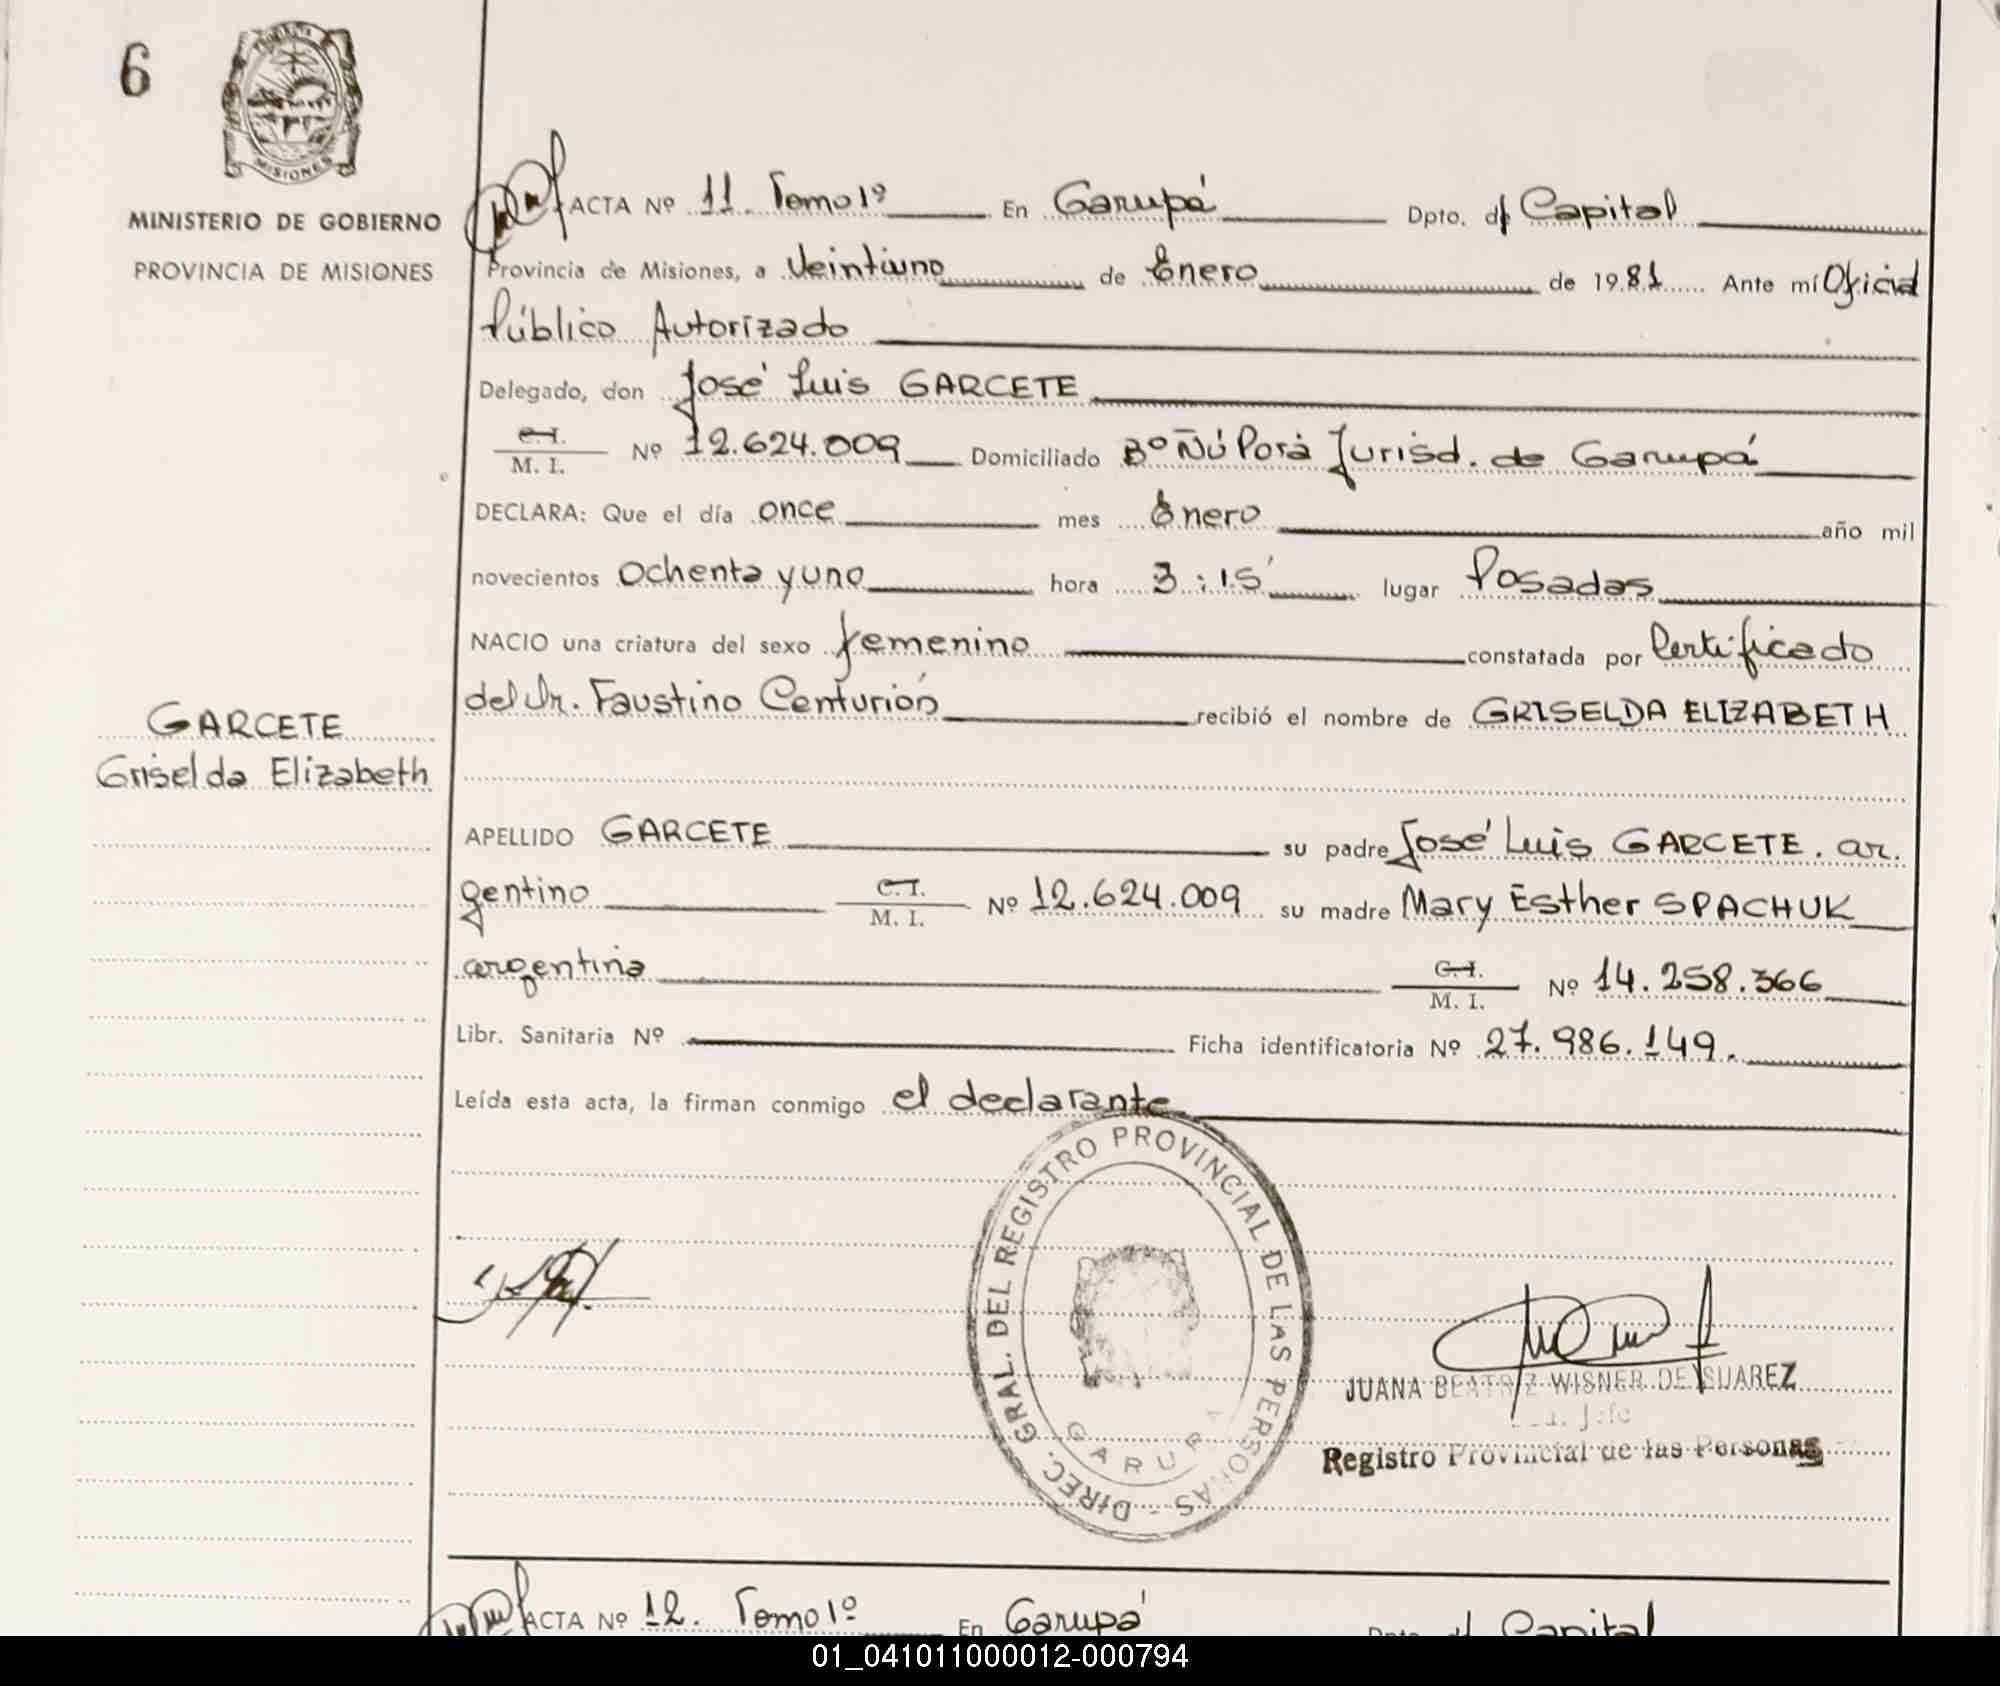 6
MISIONES
MINISTERIO DE GOBIERNO
PROVINCIA DE MISIONES
ACTA Nº 11. Tomo 1º En Garupá Dpto. d Capital
Provincia de Misiones, a Veintiuno de Enero de 1981 Ante mí Oficial
Público Autorizado
Delegado, don José Luis GARCETE
C.I.
M. I. Nº 12.624.009 Domiciliado Bº Ñú Porá Jurisd. de Garupá
DECLARA: Que el día once mes Enero año mil
novecientos ochenta y uno hora 3:15' lugar Posadas
NACIO una criatura del sexo femenino constatada por Certificado
del Dr. Faustino Centurión recibió el nombre de GRISELDA ELIZABETH
GARCETE
Griselda Elizabeth
APELLIDO GARCETE su padre José Luis GARCETE. ar.
gentino C.I.
M. I. Nº 12.624.009 su madre Mary Esther SPACHUK
argentina C.I.
M. I. Nº 14.258.366
Libr. Sanitaria Nº Ficha identificatoria Nº 27.986.149.
Leída esta acta, la firman conmigo el declarante
DIREC. GRAL. DEL REGISTRO PROVINCIAL DE LAS PERSONAS -
GARUPA
JUANA BEATRIZ WISNER DE SUAREZ
Jefe
Registro Provincial de las Personas
ACTA Nº 12. Tomo 1º En Garupá Dpto. d Capital
01_041011000012-000794